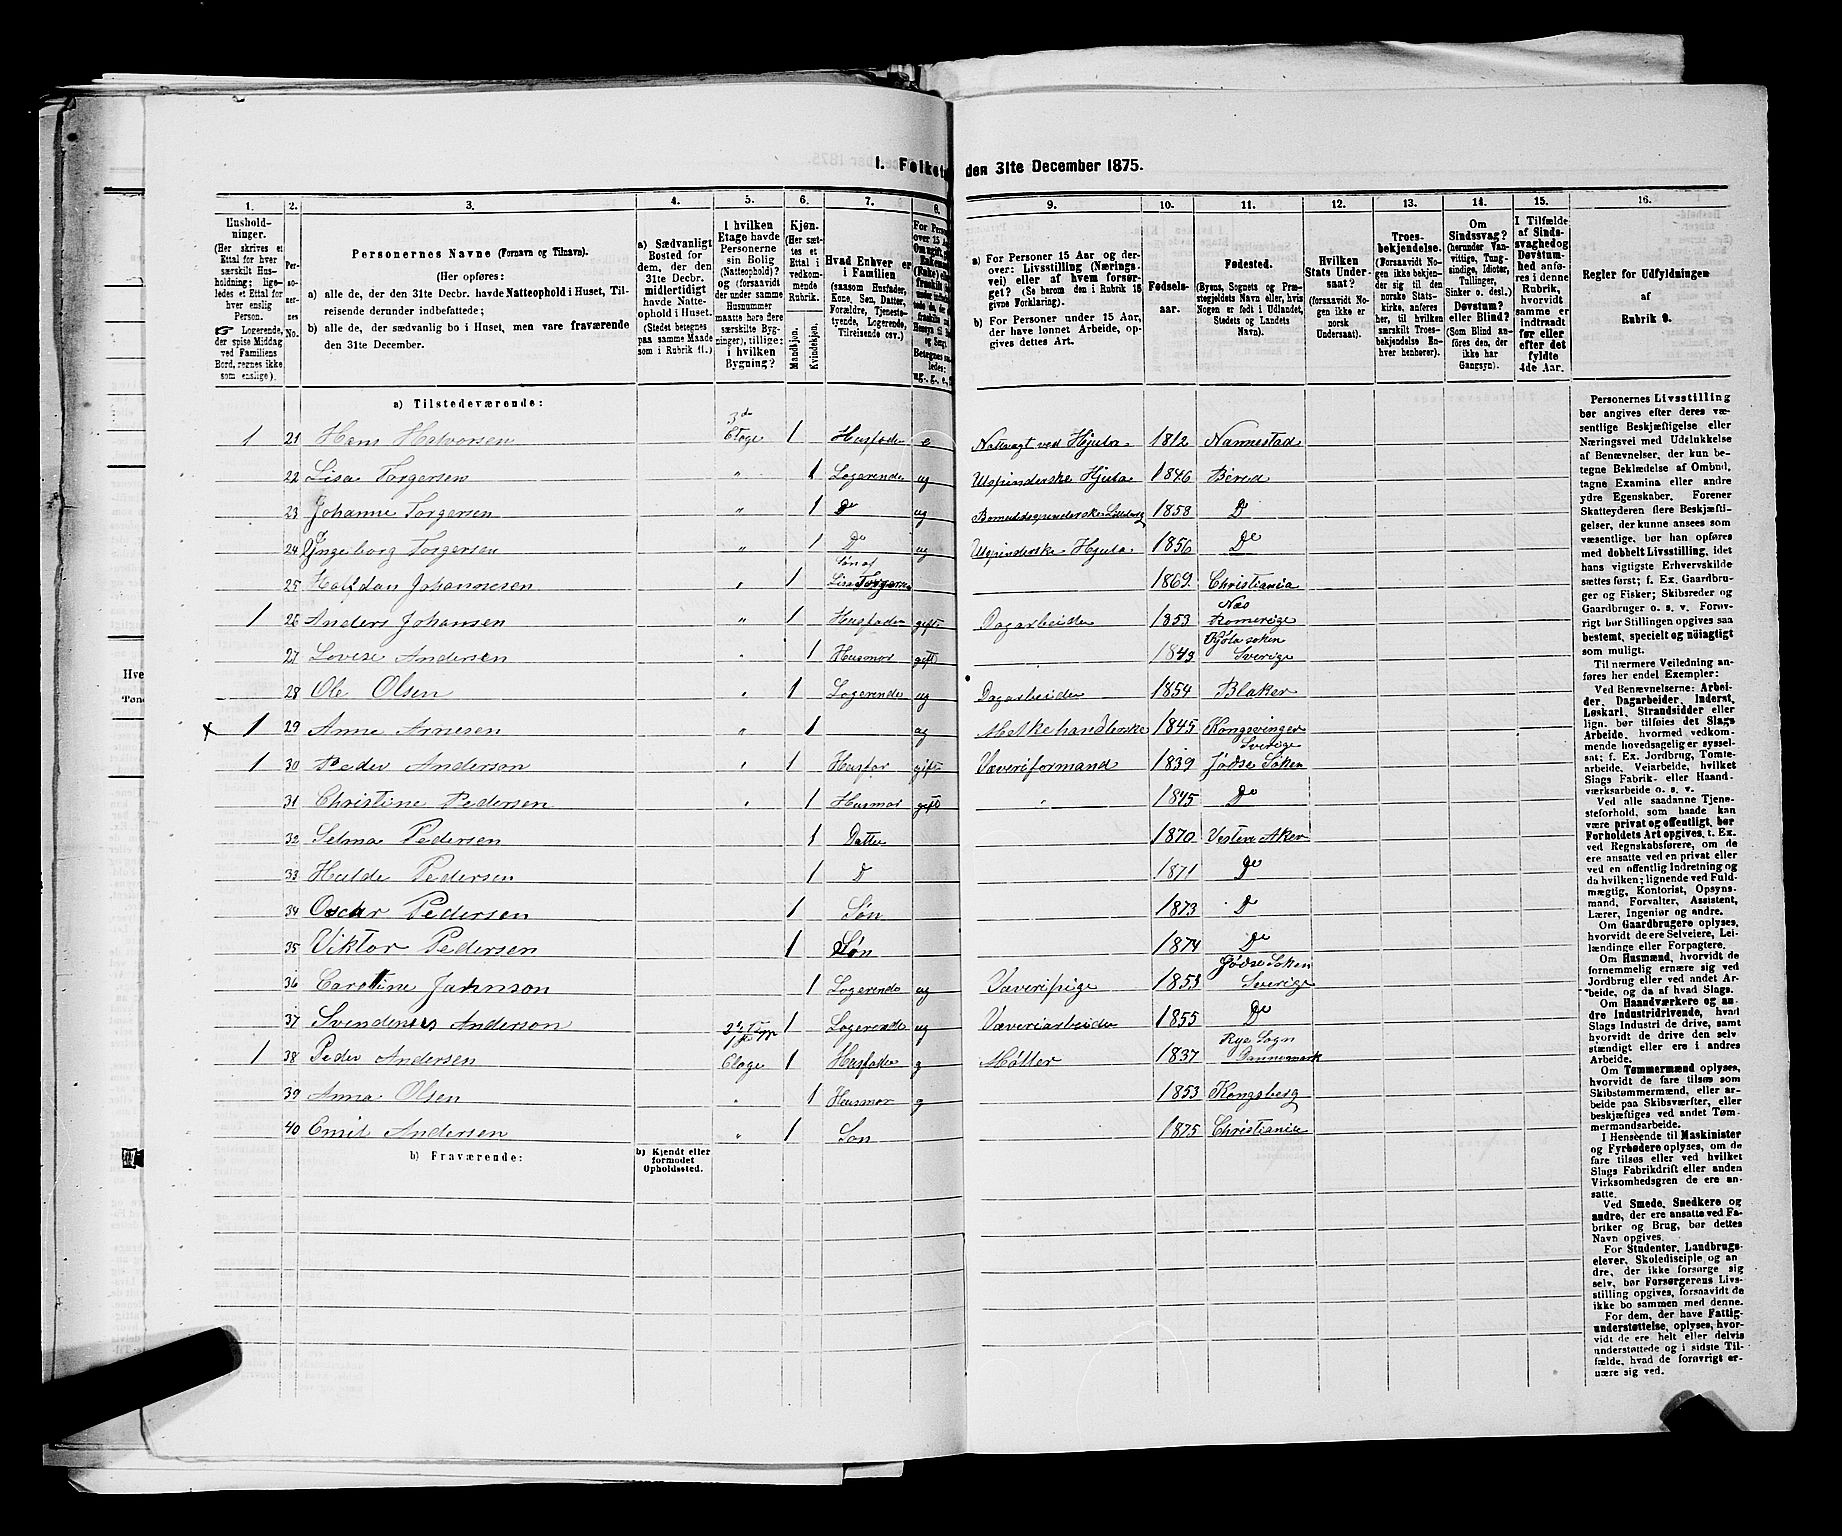 1. Folketæ den 31te December 1875.
1. 2. 3. 4. 5. 6. 7. 8. 9. 10. 11. 12. 13. 14. 15. 16.
Husholdninger.
(Her skrives et Ettal for hver særskilt Husholdning; ligeledes et Ettal for hver enslig Person.
☞ Logerende, der spise Middag ved Familiens Bord, regnes ikke som enslige).
Personernes No.
Personernes Navne (Fornavn og Tilnavn).
(Her opføres:
a) alle de, der den 31te Decbr. havde Natteophold i Huset, Tilreisende derunder indbefattede;
b) alle de, der sædvanlig bo i Huset, men vare fraværende den 31te December.
a) Sædvanligt Bosted for dem, der den 31te Decbr. midlertidigt havde Natteophold i Huset. (Stedet betegnes paa samme Maade som i Rubrik 11.)
I hvilken Etage havde Personerne sin Bolig (Natteophold)? og (forsaavidt der under samme Husnummer maatte høre flere særskilte Bygninger), tillige: i hvilken Bygning?
Kjøn.
(Her sættes et Ettal i vedkommende Rubrik.
Mandkjøn. Kvindekjøn.
Hvad Enhver er i Familien
(saasom Husfader, Kone, Søn, Datter, Forældre, Tjenestetyende, Logerende, Tilreisende osv.)
a) For Personer 15 Aar og derover: Livsstilling (Næringsvei) eller af hvem forsørget? (Se herom den i Rubrik 16 givne Forklaring).
b) For Personer under 15 Aar, der have lønnet Arbeide, opgives dettes Art.
Fødselsaar.
Fødested.
(Byens, Sognets og Præstegjeldets Navn eller, hvis Nogen er født i Udlandet, Stedets og Landets Navn).
Hvilken Stats Undersaat?
(forsaavidt Nogen ikke er norsk Undersaat).
Troesbekjendelse.
(Forsaavidt Nogen ikke bekjender sig til den norske Statskirke, anføres her, til hvilken særskilt Troesbekjendelse Enhver henhører).
Om Sindssvag? (herunder Vanvittige, Tungsindige, Idioter, Tullinger, Sinker o. desl.)
Døvstum? eller Blind?
(Som Blind anføres den, der ikke har Gangsyn).
I Tilfælde af Sindssvaghed og Døvstumhed anføres i denne Rubrik, hvorvidt samme er indtraadt før eller efter det fyldte 4de Aar.
Regler for Udfyldningen
af
Rubrik 9.
a) Tilstedeværende:
1 21 Hans Halvorsen 3de Etage 1 Husfader e Nattvagt ved Hjula 1812 Nannestad
22 Lisa Torgersen " 1 Logerende ug Uspinderske Hjula 1846 Bered
23 Johanne Torgersen " 1 Do ug Bomuldsspinderske 1858 D
24 Ingeborg Torgersen " 1 Do ug Uspinderske Hjula 1856 Do
25 Halfdan Johannesen " 1 Søn af Lisa Torgersen 1869 Christiania
1 26 Anders Johansen " 1 Husfader gift Dagarbeider 1853 Næs Romerige
27 Lovise Andersen " 1 Husmor gift 1843 Sverige
28 Ole Olsen " 1 Logerende ug Dagarbeider 1854 Blaker
x 1 29 Anne Arnesen " 1 ug Melkehandlerske 1845 Kongsvinger
1 30 Peder Anderson " 1 Husfar gift Væveriformand 1839 Sverige Jødse Soken
31 Christine Pedersen " 1 Husmor gift " 1845 Do
32 Selma Pedersen 1 Datter 1870 Vestere Aker
33 Hulde Pedersen 1 D 1871 Do
34 Oscar Pedersen 1 Søn 1873 D
35 Viktor Pedersen 1 Søn 1874 Do
36 Caroline Jahnson 1 Logerende ug Væveripige 1853 Jødse Soken Sverige
37 Svendenes Anderson 1 Logerende ug Væveriarbeider 1855 Do
1 38 Peder Andersen Etage 1 Husfader g Møller 1837 Rye Sogn Dannemark
39 Anna Olsen " 1 Husmor g 1853 Kongsberg
40 Emil Andersen " 1 Søn 1875 Christiania
b) Fraværende:
b) Kjendt eller formodet Opholdssted.
Personernes Livsstilling bør angives efter deres væsentlige Beskjæftigelse eller Næringsvei med Udelukkelse af Benævnelser, der kun betegne Beklædelse af Ombud, tagne Examina eller andre ydre Egenskaber. Forener Skatteyderen flere Beskjæftigelser, der kunne ansees som væsentlige, bør han opføres med dobbelt Livsstilling, idet hans vigtigste Erhvervskilde sættes først; f. Ex. Gaardbruger og Fisker; Skibsreder og Gaardbruger o. s. v. Forøvrigt bør Stillingen opgives saa bestemt, specielt og nøiagtigt som muligt.
Til nærmere Veiledning anføres her endel Exempler:
Ved Benævnelserne: Arbeider, Dagarbeider, Inderst, Løskarl, Strandsidder eller lign. bør tilføies det Slags Arbeide, hvormed vedkommende hovedsagelig er sysselsat; f. Ex. Jordbrug, Tømtearbeide, Veiarbeide, hvilket Slags Fabrik- eller Haandværksarbeide o. s. v.
Ved alle saadanne Tjenesteforhold, som baade kan være privat og offentligt, bør Forholdets Art opgives, t. Ex. ved Regnskabsførere, om de ere ansatte ved en privat eller ved en offentlig Indretning og da hvilken; lignende ved Fuldmægtig, Kontorist, Opsynsmand, Forvalter, Assistent, Lærer, Ingeniør og andre.
Om Gaardbrugere oplyses, hvorvidt de ere Selveiere, Leilændinge eller Forpagtere.
Om Husmænd, hvorvidt de fornemmelig ernære sig ved Jordbrug eller ved andet Arbeide, og da af hvad Slags.
Om Haandværkere og andre Industridrivende, hvad Slags Industri de drive, samt hvorvidt de drive den selvstændigt eller ere i andres Arbeide.
Om Tømmermænd oplyses, hvorvidt de fare tilsøs som Skibstømmermænd, eller arbeide paa Skibsværfter, eller beskjæftiges ved andet Tømmermandsarbeide.
I Henseende til Maskinister og Fyrbødere oplyses, om de fare tilsøs eller ved hvilket Slags Fabrikdrift eller anden Virksomhedsgren de ere ansatte.
Ved Smede, Snedkere og andre, der ere ansatte ved Fabriker og Brug, bør dettes Navn opgives.
For Studenter, Landbrugselever, Skoledisciple og andre, der ikke forsørge sig selv, bør Forsørgerens Livsstilling opgives, forsaavidt de ikke bo sammen med denne.
For dem, der have Fattigunderstøttelse, oplyses, hvorvidt de ere helt eller delvis understøttede og i sidste Tilfælde, hvad de forøvrigt ernære sig ved.